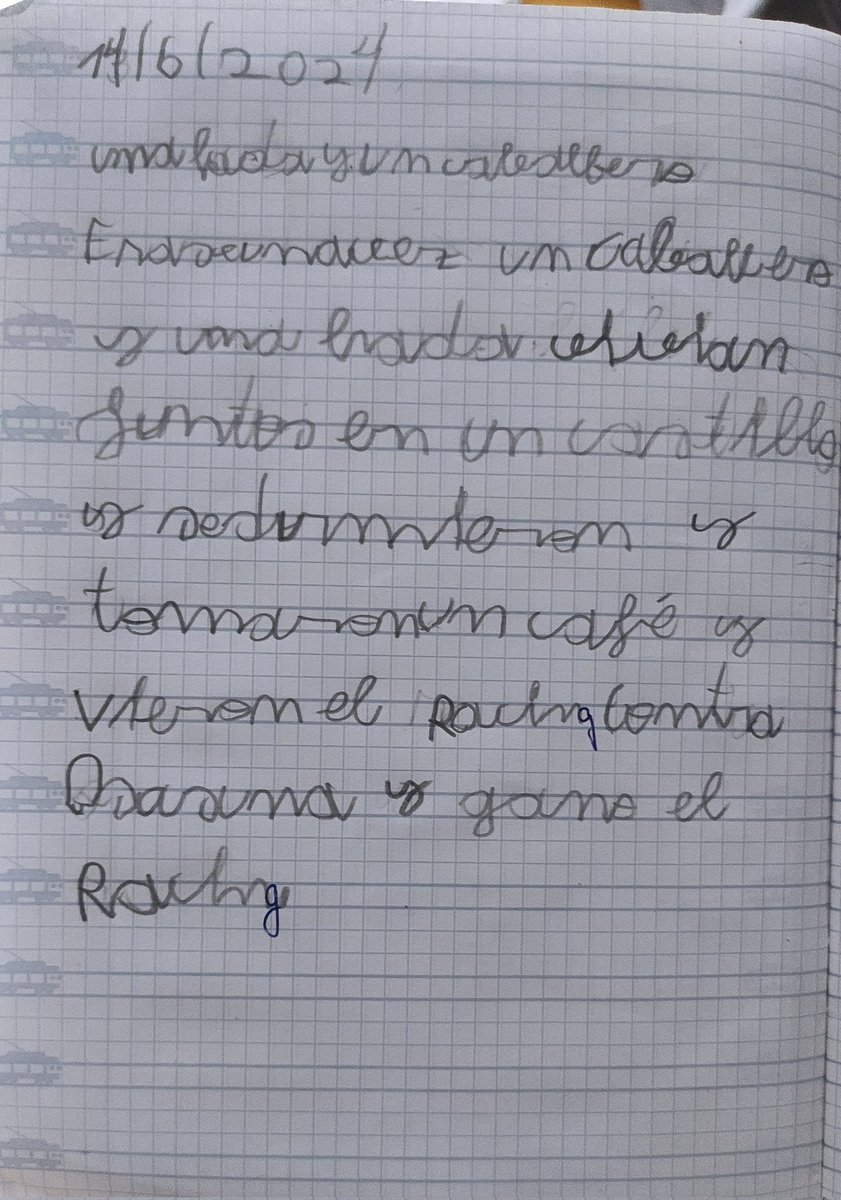 14/6/2024
una hada y un caballero
Erase una vez un caballero
y una hada vivian
juntos en un castillo
y se durmieron y
tomaron un café y
vieron el Racing contra
Osasuna y gano el
Racing